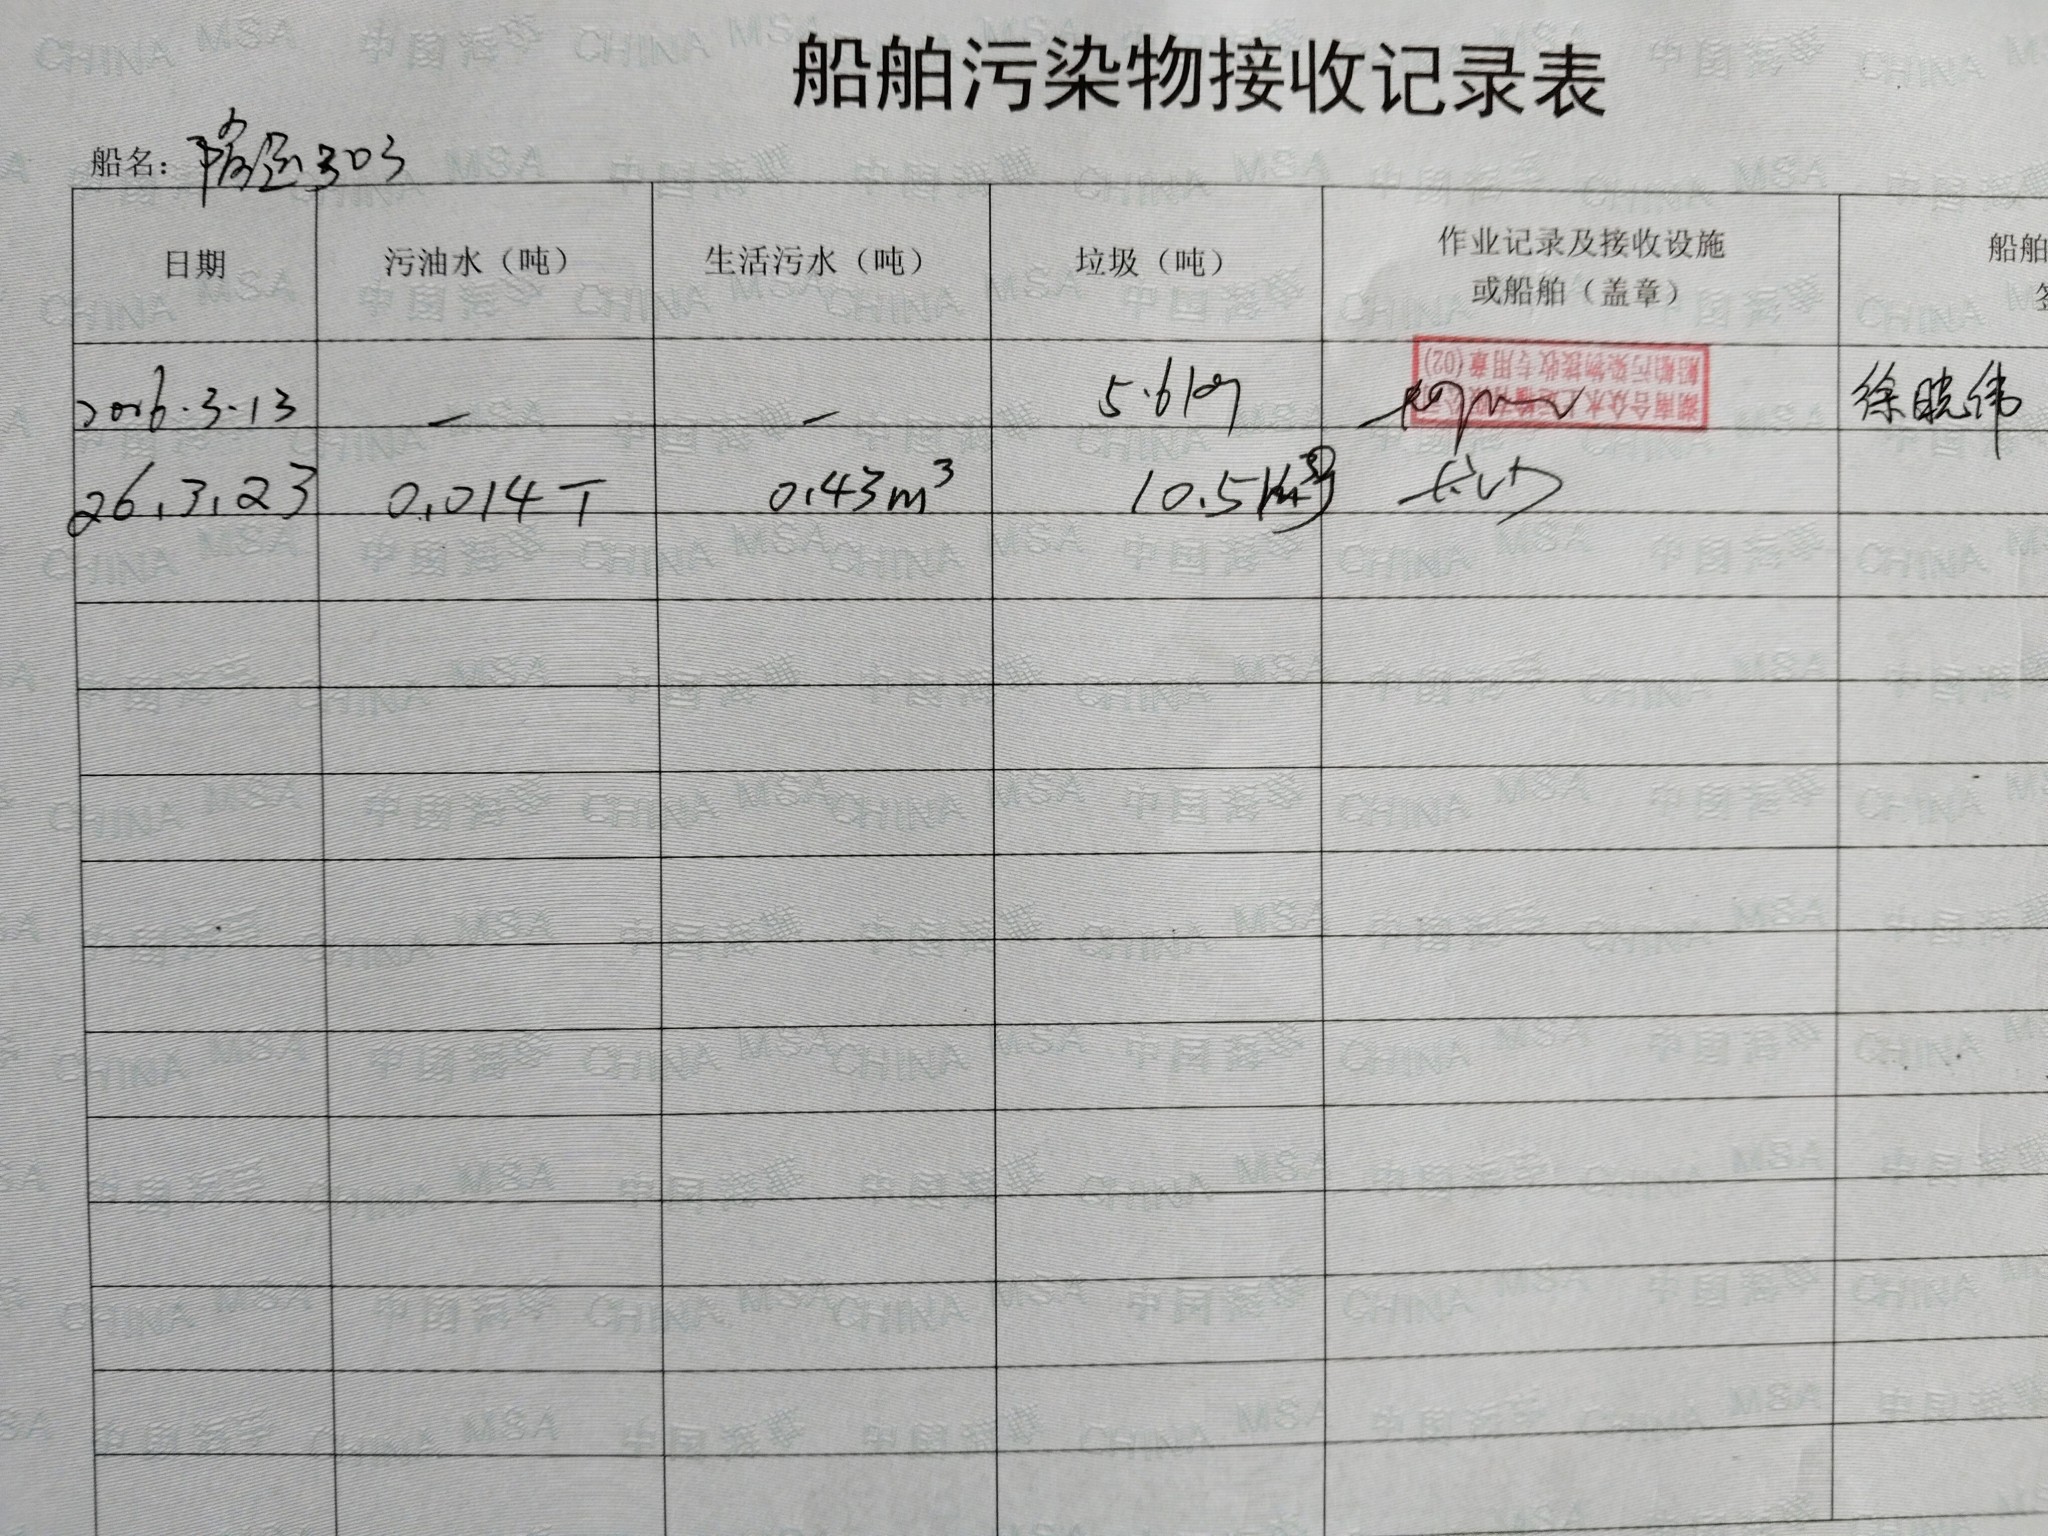 船舶污染物接收记录表
船名：隆运303
日期 污油水（吨） 生活污水（吨） 垃圾（吨） 作业记录及接收设施 船舶
或船舶（盖章） 签
2026.3.13 — — 5.6kg 徐晓伟
船舶污染物接收专用章(02)
26.3.23 0.014T 0.43m³ 10.5kg
CHINA MSA 中国海事